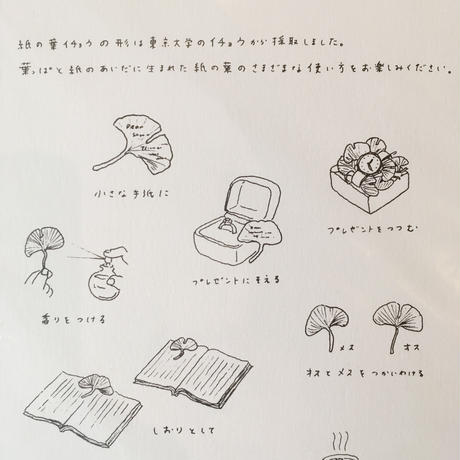 紙の葉イチョウの形は東京大学のイチョウから採取しました。
葉っぱと紙のあいだに生まれた紙の葉のさまざまな使い方をお楽しみください。
小さな手紙に
プレゼントにそえる
プレゼントをつつむ
香りをつける
メス
オス
オスとメスをつかいわける
しおりとして